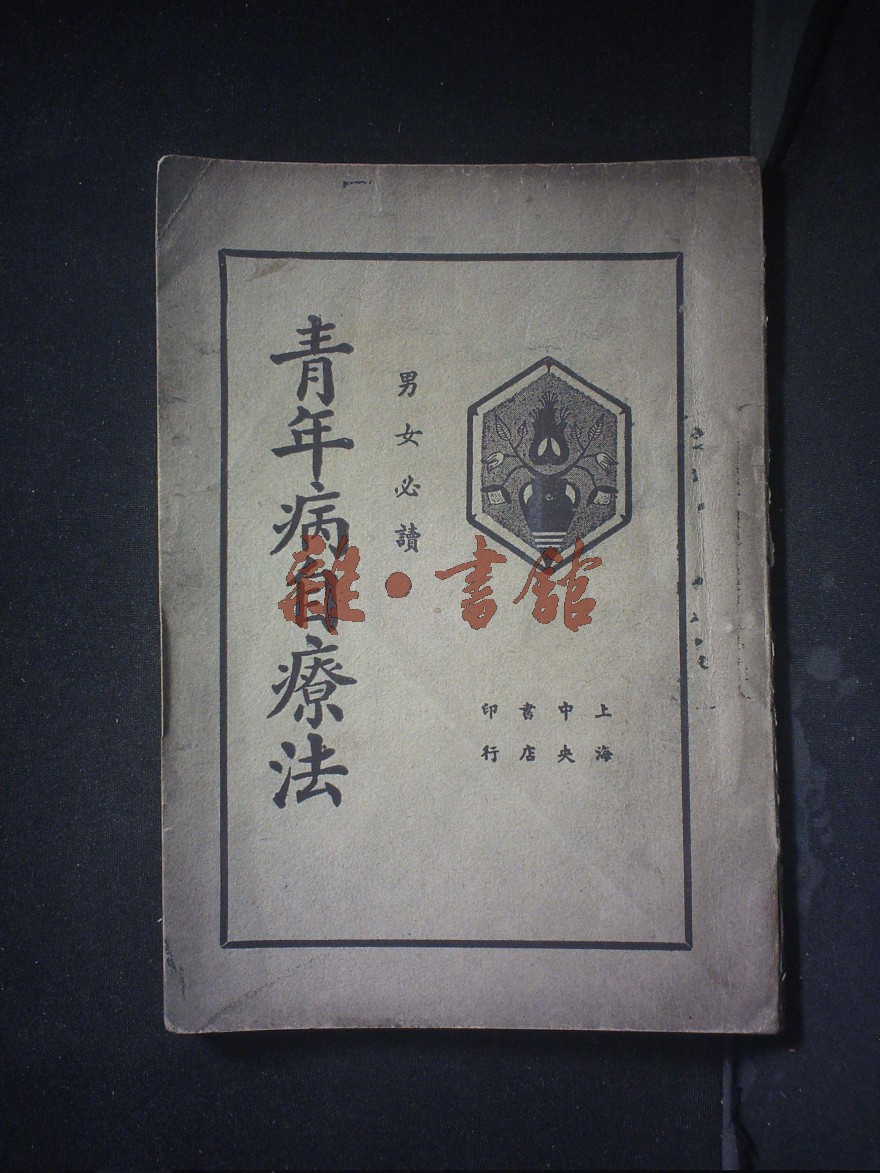 上海
中央
書店
印行
男女必讀
青年病自療法
雜·書館